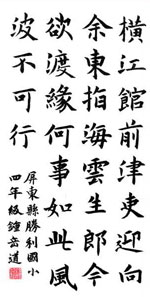 橫江館前津吏迎向
余東指海雲生郎今
欲渡緣何事如此風
波不可行
屏東縣勝利國小
四年級